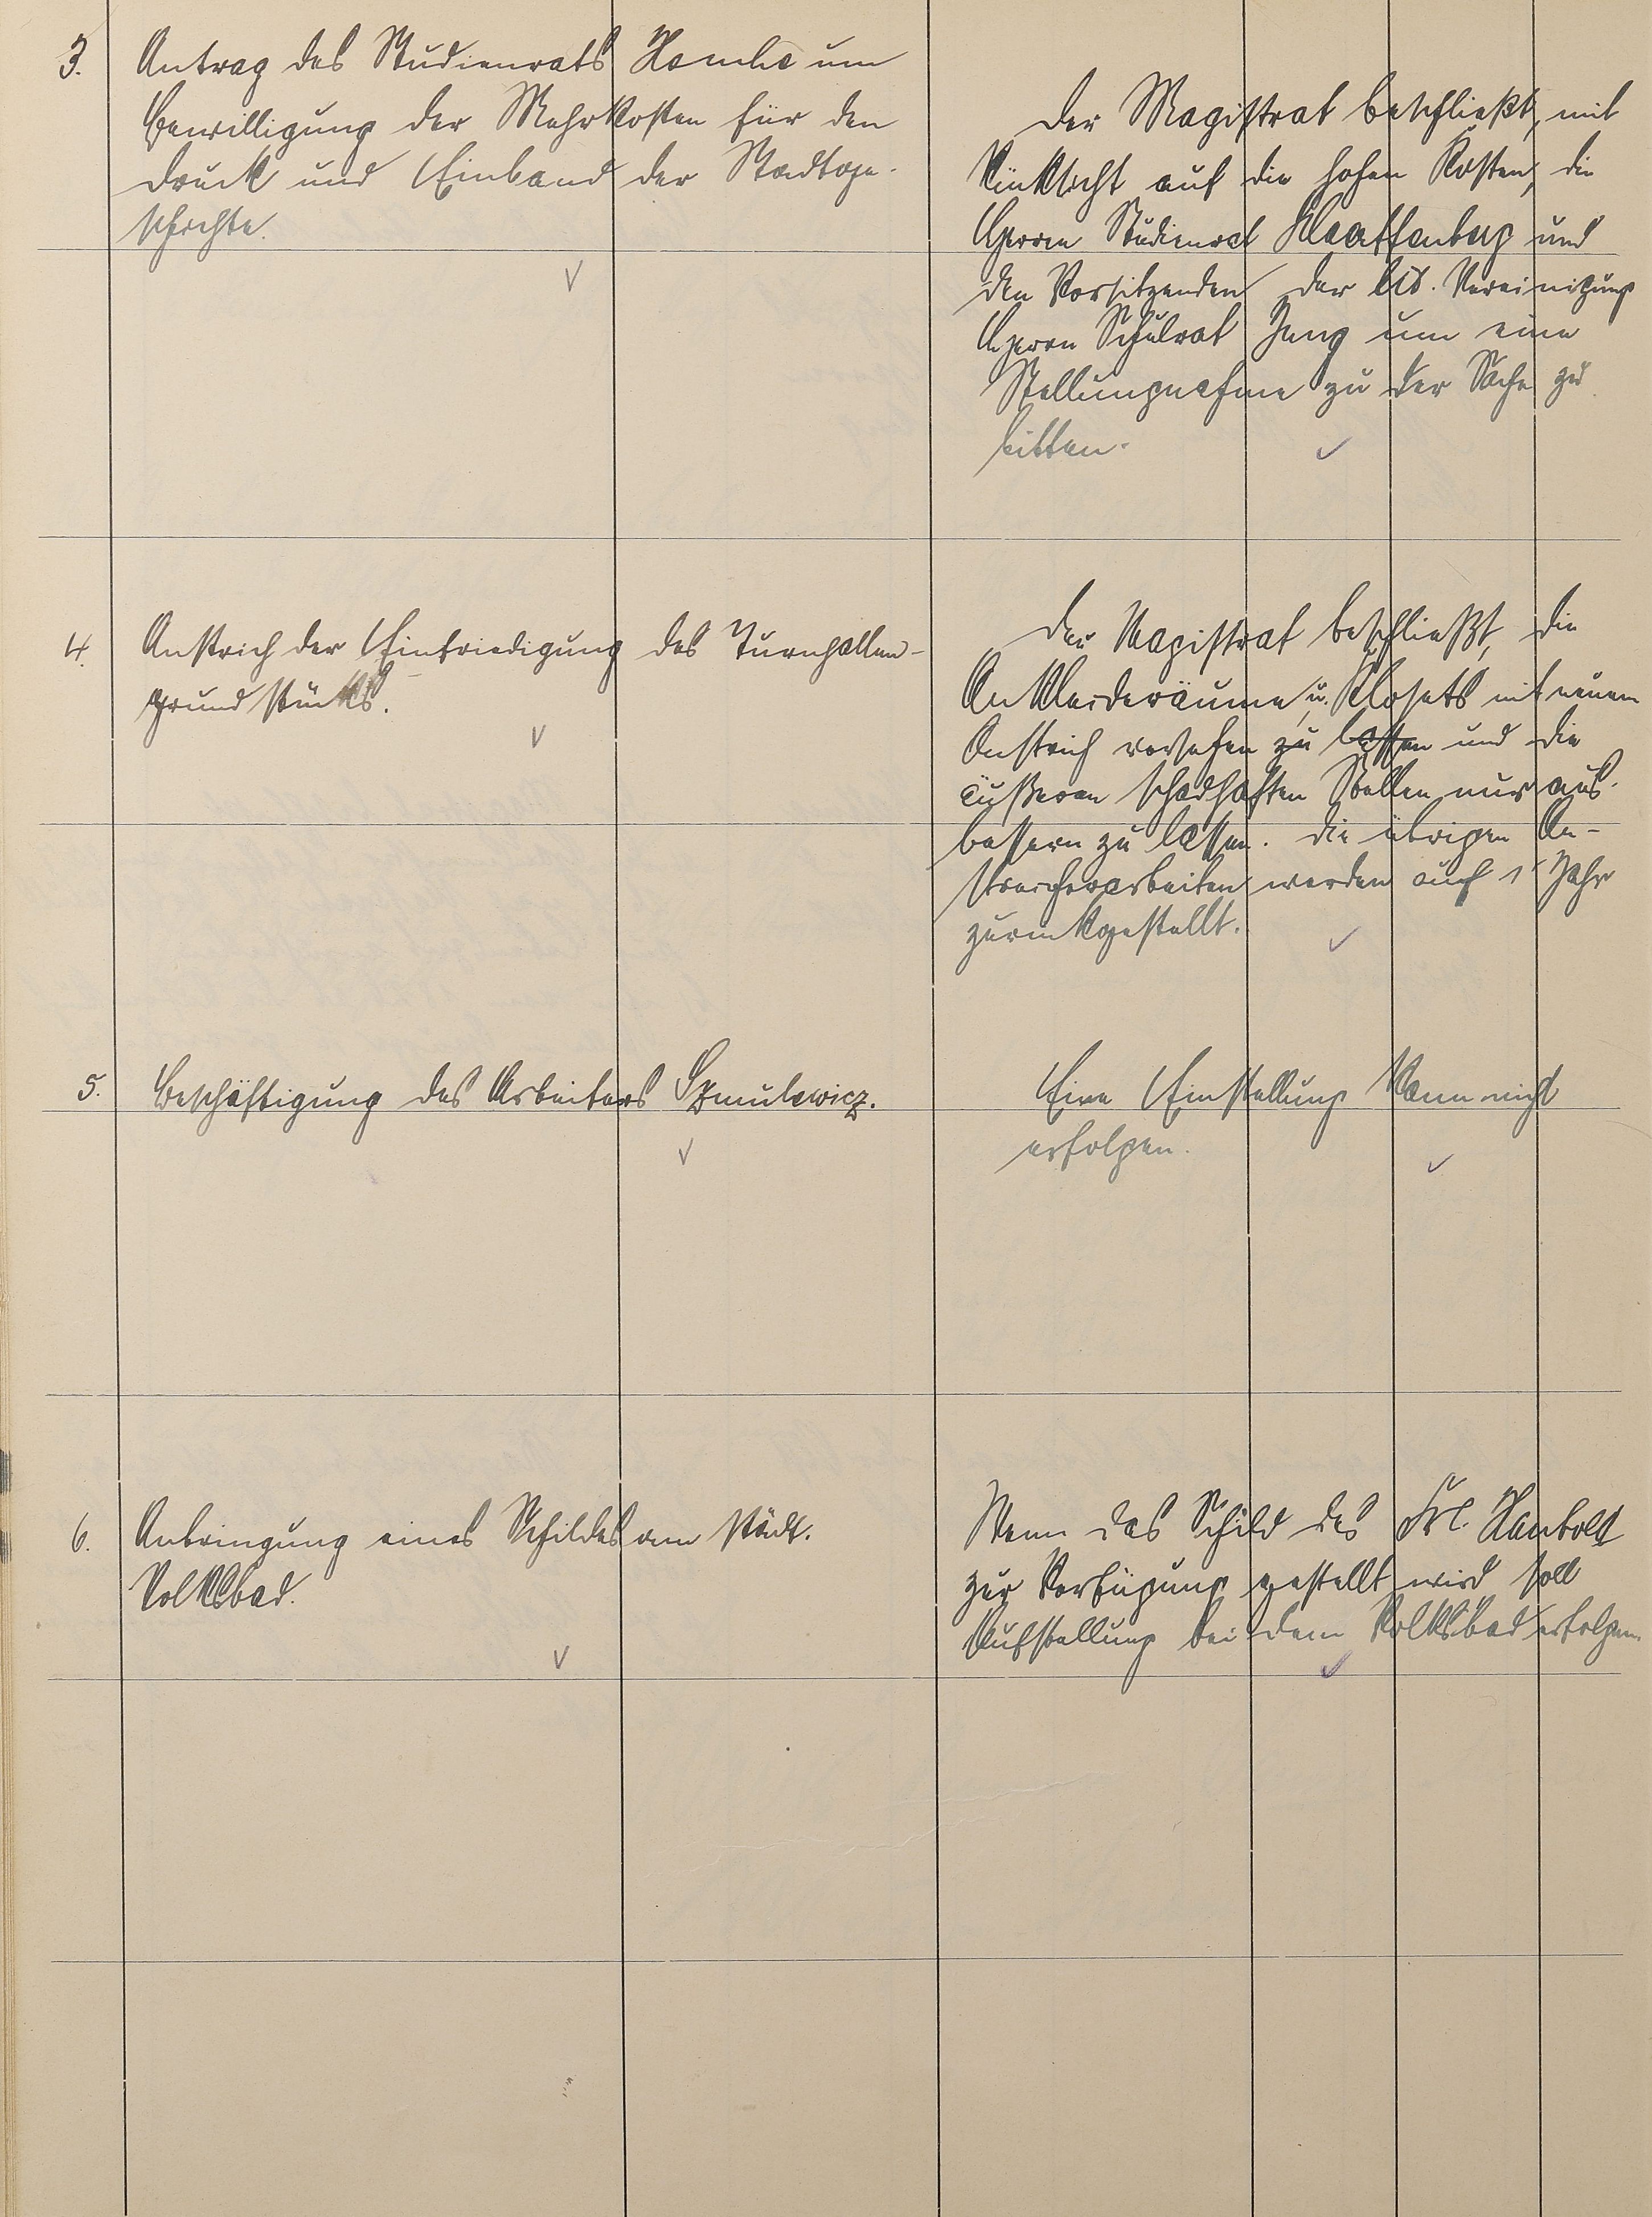 3. Antrag des Studienrats um
Bewilligung der Mehrkosten für den
Druck und Einband der Stadtge-
schichte.
Der Magistrat beschließt, mit
Rücksicht auf die hohen Kosten, die
Herren Studienrat und
den Vorsitzenden der lit. Vereinigung
Herrn Schulrat Jung um eine
Stellungnahme zu der Sache zu
bitten.
4. Anstrich der Einfriedigung des Turnhallen-
grundstücks.
Der Magistrat beschließt, die
Ankleideräume u. Klosets mit neuem
Anstrich versehen zu lassen und die
äußeren schadhaften Stellen nur aus-
bessern zu lassen. Die übrigen An-
streicherarbeiten werden auf 1 Jahr
zurückgestellt.
5. Beschäftigung des Arbeiters Szmulewicz.
Eine Einstellung kann nicht
erfolgen.
6. Anbringung eines Schildes am städt.
Volksbad.
Wenn das Schild des Frl.
zur Verfügung gestellt wird soll
Aufstellung bei dem Volksbad erfolgen.